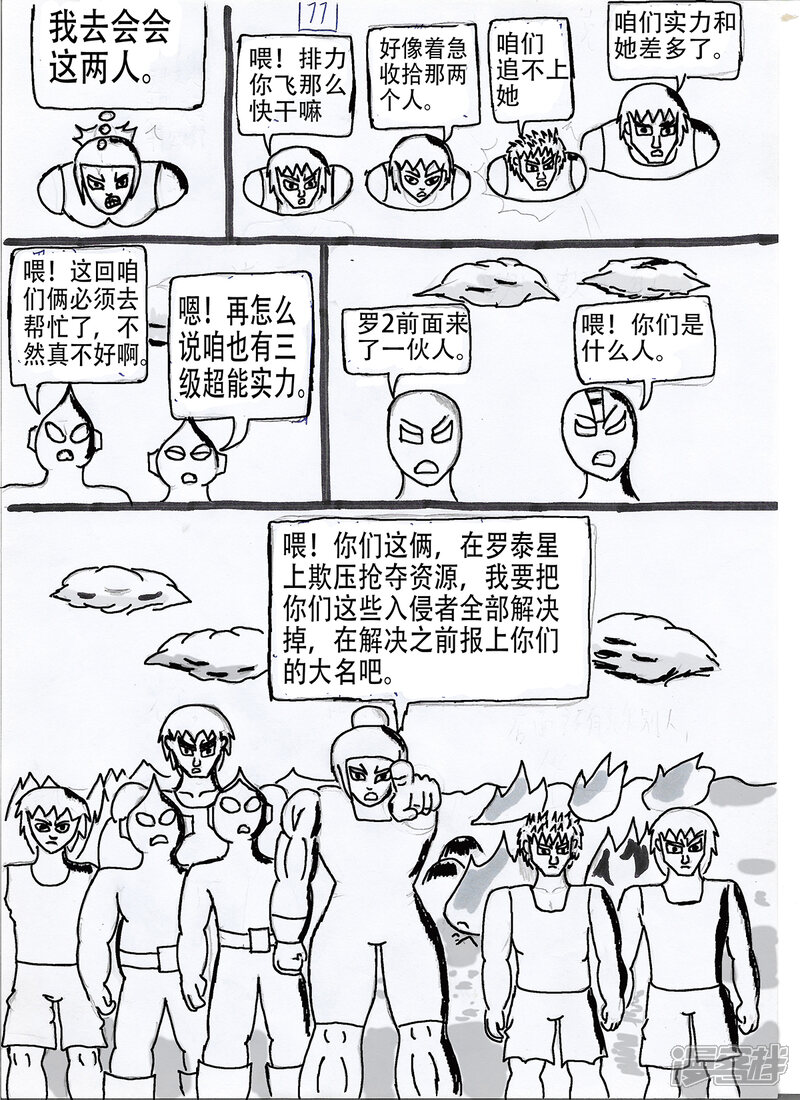 11
我去会会
这两人。
喂！排力
你飞那么
快干嘛
好像着急
收拾那两
个人。
咱们
追不上
她
咱们实力和
她差多了。
喂！这回咱
们俩必须去
帮忙了，不
然真不好啊。
嗯！再怎么
说咱也有三
级超能实力。
罗2前面来
了一伙人。
喂！你们是
什么人。
喂！你们这俩，在罗泰星
上欺压抢夺资源，我要把
你们这些入侵者全部解决
掉，在解决之前报上你们
的大名吧。
漫客栈